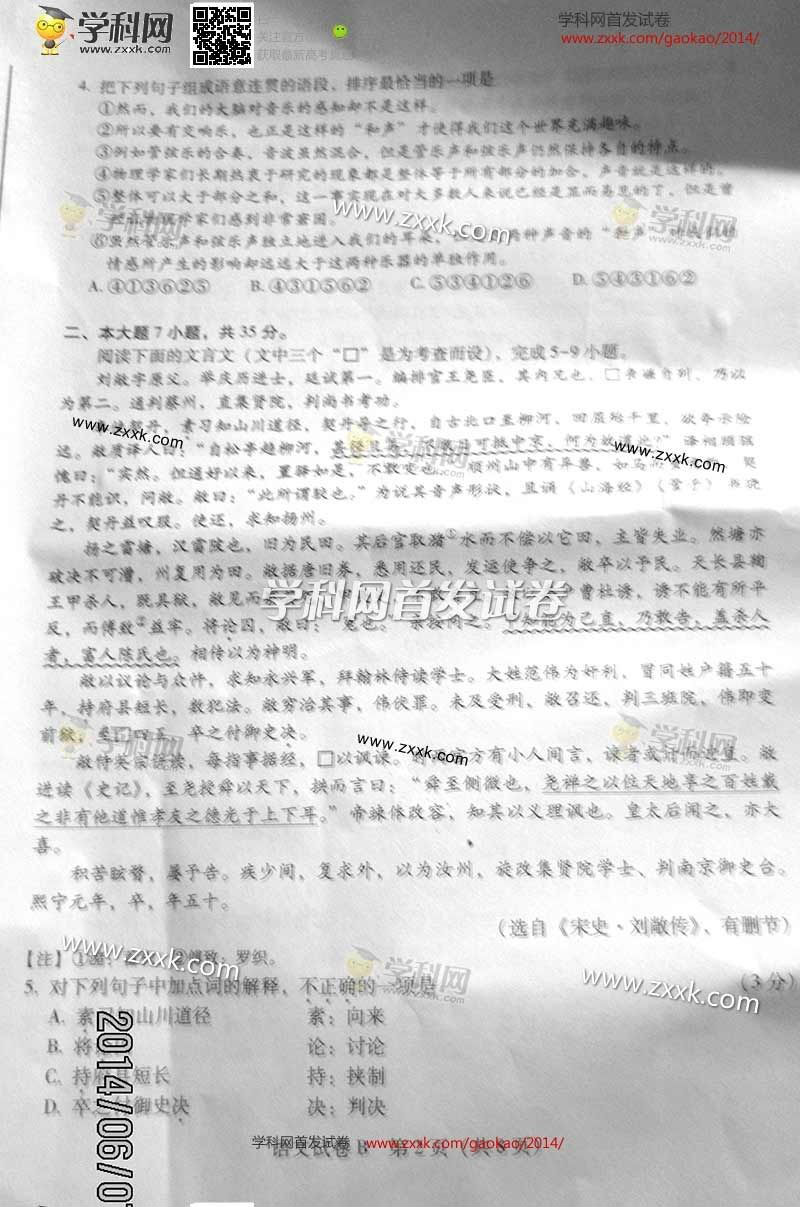 学科网
www.zxxk.com
关注官方
获取最新高考真题
学科网首发试卷
www.zxxk.com/gaokao/2014/
4. 把下列句子组成语意连贯的语段，排序最恰当的一项是
①然而，我们的大脑对音乐的感知却不是这样。
②所以要有交响乐，也正是这样的“和声”才使得我们这个世界充满趣味。
③例如管弦乐的合奏，音波虽然混合，但是管乐声和弦乐声仍然保持各自的特点。
④物理学家们长期热衷于研究的现象都是整体等于所有部分的加合，声音就是这样的。
⑤整体可以大于部分之和，这一事实现在对大多数人来说已经是显而易见的了，但是曾
学家们感到非常震困。
⑥虽然管乐声和弦乐声独立地进入我们的耳朵，但 种声音的“和声”对我们的
情感所产生的影响却远远大于这两种乐器的单独作用。
A. ④①③⑥②⑤ B. ④③①⑤⑥② C. ⑤③④①②⑥ D. ⑤④③①⑥②
二、本大题 7 小题，共 35 分。
阅读下面的文言文（文中三个“□”是为考查而设），完成 5~9 小题。
刘敞字原父。举庆历进士，廷试第一。编排官王尧臣，其内兄也，□ 乃以
为第二。通判蔡州，直集贤院，判尚书考功。
契丹，素习知山川道径，契丹导之行，自古北口至柳河，回屈殆千里，欲夸示险
远。敞质译人曰：“自松亭趋柳河， 不数日可抵中京，何为故道此？”译相顾骇
愧曰：“实然。但通好以来，置驿如是，不敢变也。” 顺州山中有异兽，如马 契
丹不能识，问敞。敞曰：“此所谓駮也。”为说其音声形状，且诵《山海经》《管子》书晓
之，契丹益叹服。使还，求知扬州。
扬之雷塘，汉雷陂也，旧为民田。其后官取潴①水而不偿以它田，主皆失业。然塘亦
破决不可漕，州复用为田。敞据唐旧券，悉用还民，发运使争之，敞卒以予民。天长县鞫
王甲杀人，既具狱，敞见而 曾杜诱，诱不能有所平
反，而傅致②益牢。将论囚，敞曰：“冤也。”亲按问之。 知能为己直，乃敢告，盖杀人
者，富人陈氏也。相传以为神明。
敞以议论与众忤，求知永兴军，拜翰林侍读学士。大姓范伟为奸利，冒同姓户籍五十
年，持府县短长，数犯法。敞穷治其事，伟伏罪。未及受刑，敞召还，判三班院，伟即变
前狱，至□四五，卒之付御史决。
敞侍英宗讲读，每指事据经，□以讽谏。时两宫方有小人间言，谏者或讦而过直。敞
进读《史记》，至尧授舜以天下，拱而言曰：“舜至侧微也，尧禅之以位天地享之百姓戴
之非有他道惟孝友之德光于上下耳。”帝竦体改容，知其以义理讽也。皇太后闻之，亦大
喜。
积苦眩瞀，屡予告。疾少间，复求外，以为汝州，旋改集贤院学士、判南京御史台。
熙宁元年，卒，年五十。
（选自《宋史·刘敞传》，有删节）
【注】①潴： ②傅致：罗织。
5. 对下列句子中加点词的解释，不正确的一项是 （3 分）
A. 素习知山川道径 素：向来
B. 将论囚 论：讨论
C. 持府县短长 持：挟制
D. 卒之付御史决 决：判决
学科网首发试卷 www.zxxk.com/gaokao/2014/
语文试卷 B 第 2 页（共 8 页）
2014/06/0